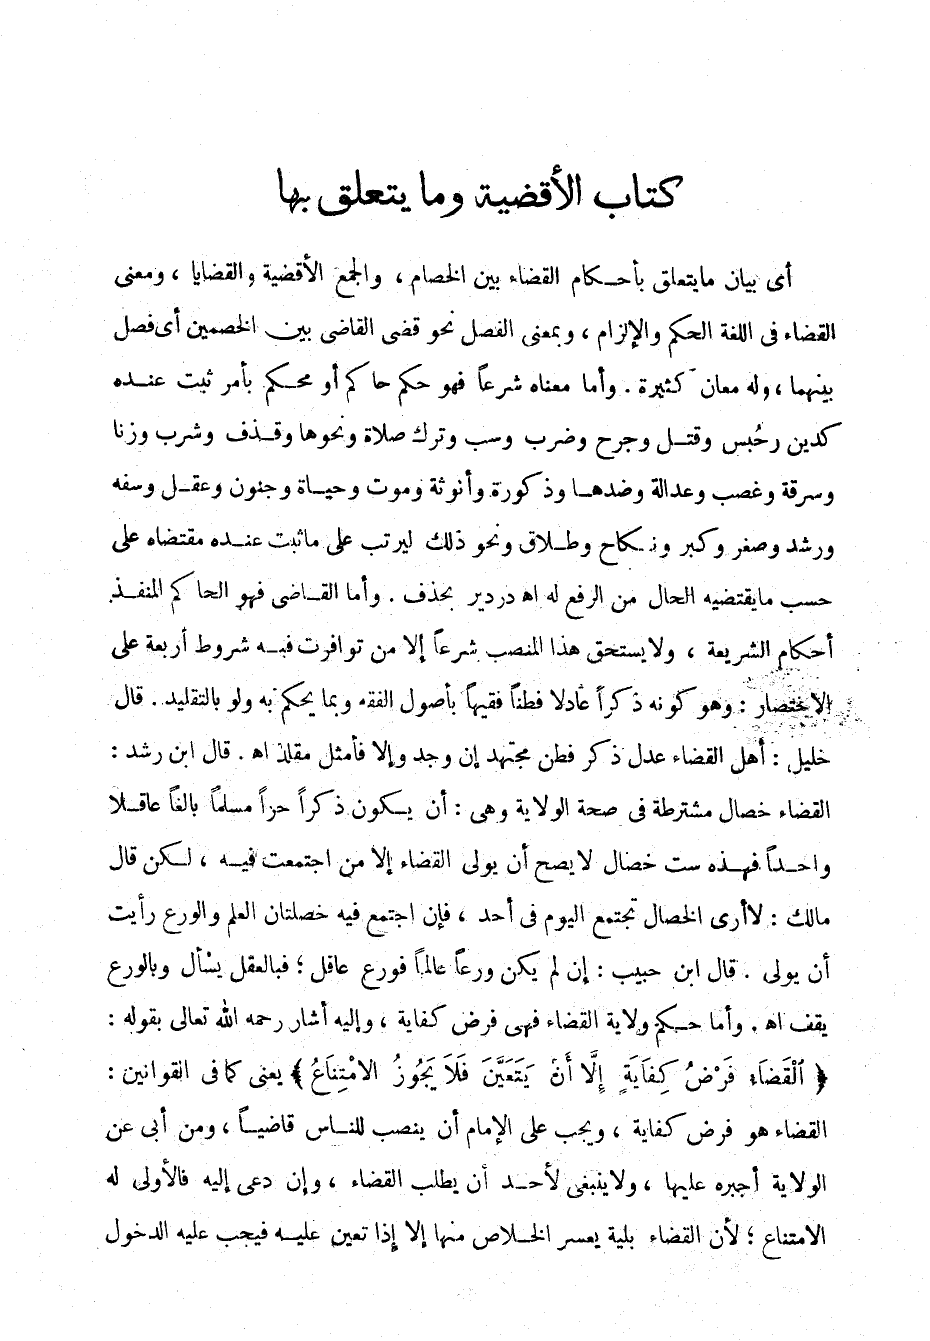 كتاب الأقضية وما يتعلق بها
أى بيان مايتعلق بأحكام القضاء بين الخصام ، والجمع الأقضية والقضايا ، ومعنى
القضاء فى اللغة الحكم والإلزام ، وبمعنى الفصل نحو قضى القاضى بين الخصمين أى فصل
بينهما ، وله معان كثيرة . وأما معناه شرعاً فهو حكم حاكم أو محكم بأمر ثبت عنده
كدين وحُبس وقتل وجرح وضرب وسب وترك صلاة ونحوها وقذف وشرب وزنا
وسرقة وغصب وعدالة وضدها وذكورة وأنوثة وموت وحياة وجنون وعقل وسفه
ورشد وصغر وكبر ونكاح وطلاق ونحو ذلك ليرتب على ماثبت عنده مقتضاه على
حسب مايقتضيه الحال من الرفع له اه دردير بحذف . وأما القاضى فهو الحاكم المنفذ
أحكام الشريعة ، ولايستحق هذا المنصب شرعاً إلا من توافرت فيه شروط أربعة على
الاختصار : وهو كونه ذكراً عادلا فطناً فقيهاً بأصول الفقه وبما يحكم به ولو بالتقليد . قال
خليل : أهل القضاء عدل ذكر فطن مجتهد إن وجد وإلا فأمثل مقلد اه . قال ابن رشد :
القضاء خصال مشترطة فى صحة الولاية وهى : أن يكون ذكراً حراً مسلماً بالغاً عاقلا
واحداً فهذه ست خصال لايصح أن يولى القضاء إلا من اجتمعت فيه ، لكن قال
مالك : لاأرى الخصال تجتمع اليوم فى أحد ، فإن اجتمع فيه خصلتان العلم والورع رأيت
أن يولى . قال ابن حبيب : إن لم يكن ورعاً عالماً فورع عاقل ؛ فبالعقل يسأل وبالورع
يقف اه . وأما حكم ولاية القضاء فهى فرض كفاية ، وإليه أشار رحمه الله تعالى بقوله :
﴿ ٱلْقَضَاءُ فَرْضُ كِفَايَةٍ إِلَّا أَنْ يَتَعَيَّنَ فَلَا يَجُوزُ الامْتِنَاعُ ﴾ يعنى كما فى القوانين :
القضاء هو فرض كفاية ، ويجب على الإمام أن ينصب للناس قاضياً ، ومن أبى عن
الولاية أجبره عليها ، ولاينبغى لأحد أن يطلب القضاء ، وإن دعى إليه فالأولى له
الامتناع ؛ لأن القضاء بلية يعسر الخلاص منها إلا إذا تعين عليه فيجب عليه الدخول